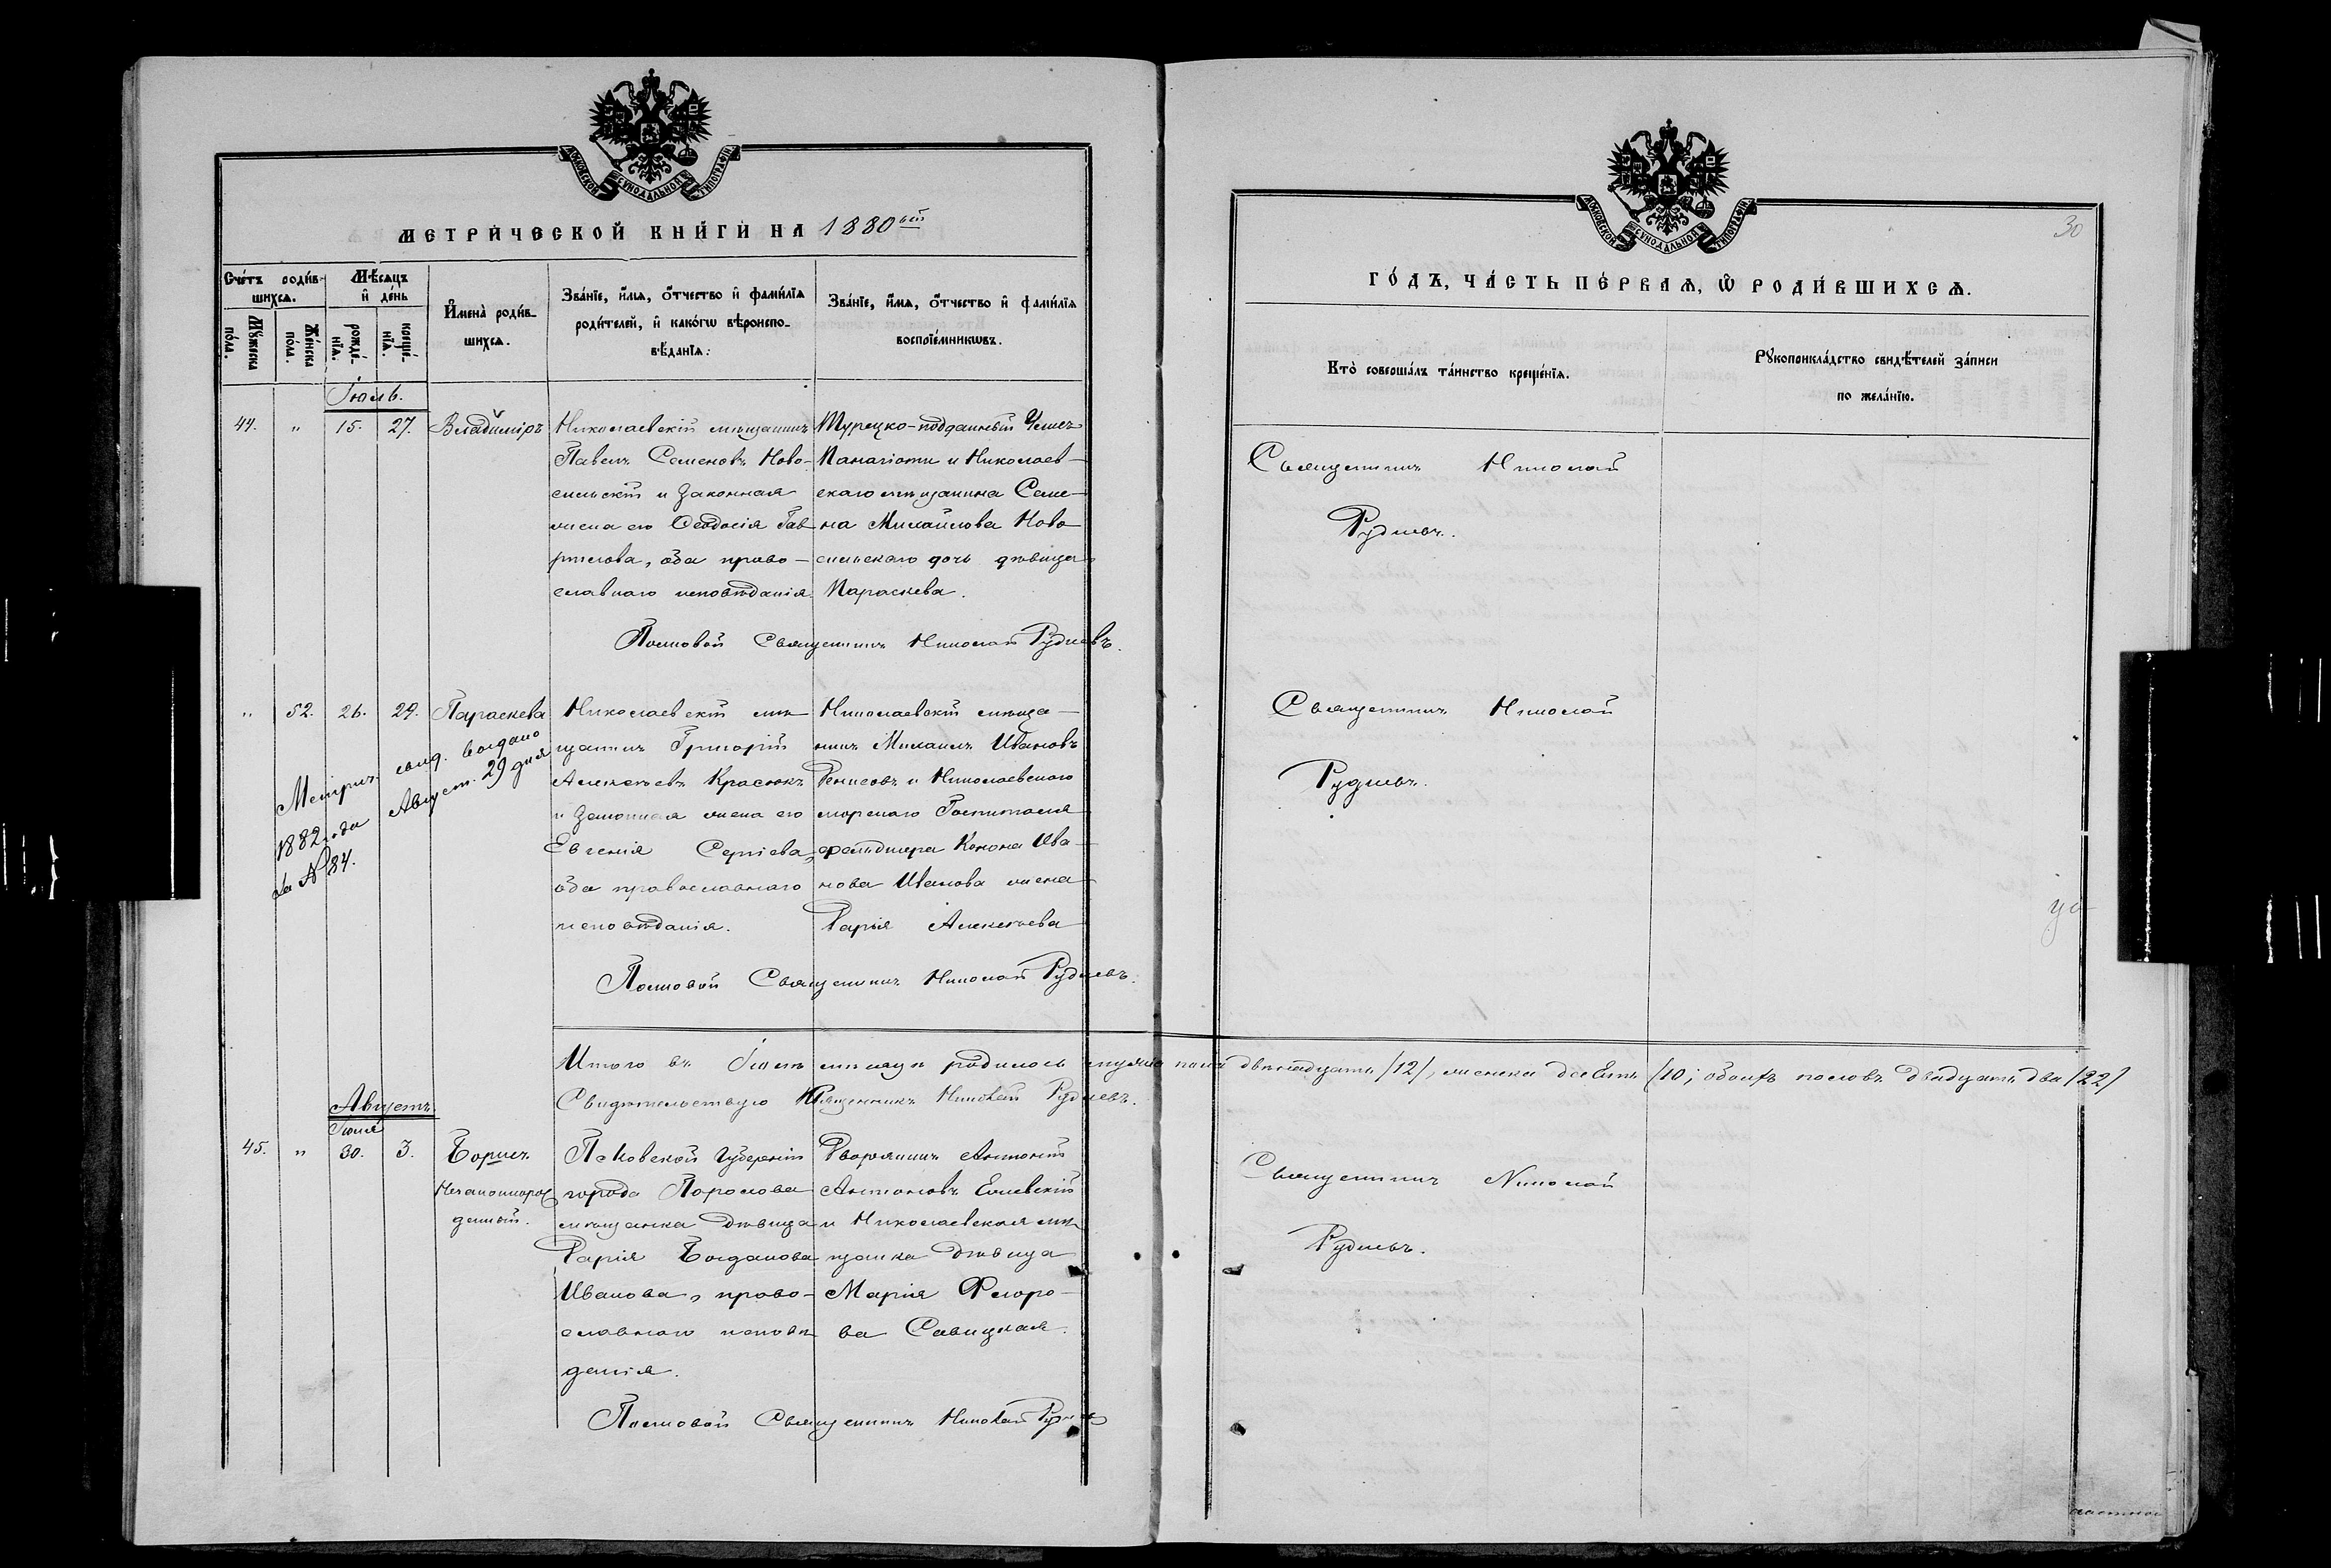 МОСКОВСКОЙ СѴНОДАЛЬНОЙ ТИПОГРАФІИ
МЕТРИ́ЧЕСКОЙ КНИ́ГИ НА 1880ый
Сче́тъ роди́в-
шихсѧ.
Мꙋ́жеска по́ла.
Же́нска по́ла.
Мѣ́сѧцъ
и҆ де́нь
рожде́-
нїѧ.
креще́-
нїѧ.
И҆мена̀ роди́в-
шихсѧ.
Зва́нїе, и҆́мѧ, ѻ҆́тчество и҆ фами́лїѧ
роди́телей, и҆ како́гѡ вѣроиспо-
вѣ́данїѧ:
Зва́нїе, и҆́мѧ, ѻ҆́тчество и҆ фами́лїѧ
воспрїе́мникѡвъ.
Іюль.
44. " 15. 27. Владиміръ
Николаевскій мѣщанинъ
Павелъ Семеновъ Ново-
сильскій и законная
жена его Ѳеодосія Гав
рилова, оба право-
славнаго исповѣданія.
Турецко-подданный
Панагіоти и Николаев-
скаго мѣщанина Семе-
на Михайлова Ново
сильскаго дочь дѣвица
Параскева.
Приходской Священникъ Николай Рудневъ.
" 52. 26. 29. Параскева
Метрич. свид. выдано
1882 года Август. 29 дня
за № 84.
Николаевскій мѣ
щанинъ Григорій
Алексѣевъ Красюкъ
и законная жена его
Евгенія Сергіева,
оба православнаго
исповѣданія.
Николаевскій мѣща-
нинъ Михаилъ Ивановъ
и Николаевскаго
морского Госпиталя
фельдшера Конона Ива-
нова Иванова жена
Дарія Алексѣева
Священникъ Николай Рудневъ.
Итого въ Іюлѣ мѣсяцѣ родилось мужска пола двѣнадцать /12/, женска десять /10/; обоихъ половъ двадцать два /22/
Свидѣтельствую Священникъ Николай Рудневъ.
Августъ.
Іюля
45. " 30. 3. Борисъ
Незаконнорож
денный.
Псковской Губерніи
города Порхова
мѣщанка дѣвица
Дарія Богданова
Иванова, право-
славнаго исповѣ
данія.
Дворянинъ Антоній
Антоновъ
и Николаевская мѣ
щанка дѣвица
Марія Флоро-
ва Савицкая.
Священникъ Николай Рудневъ
МОСКОВСКОЙ СѴНОДАЛЬНОЙ ТИПОГРАФІИ
30
ГО́ДЪ, ЧА́СТЬ ПЕ́РВАѦ, Ѡ҆ РОДИ́ВШИХСѦ.
Кто̀ соверша́лъ та́инство креще́нїѧ.
Рꙋкоприкла́дство свидѣ́телей за́писи
по жела́нїю.
Священникъ Николай
Рудневъ.
Священникъ Николай
Рудневъ.
Священникъ Николай
Рудневъ.